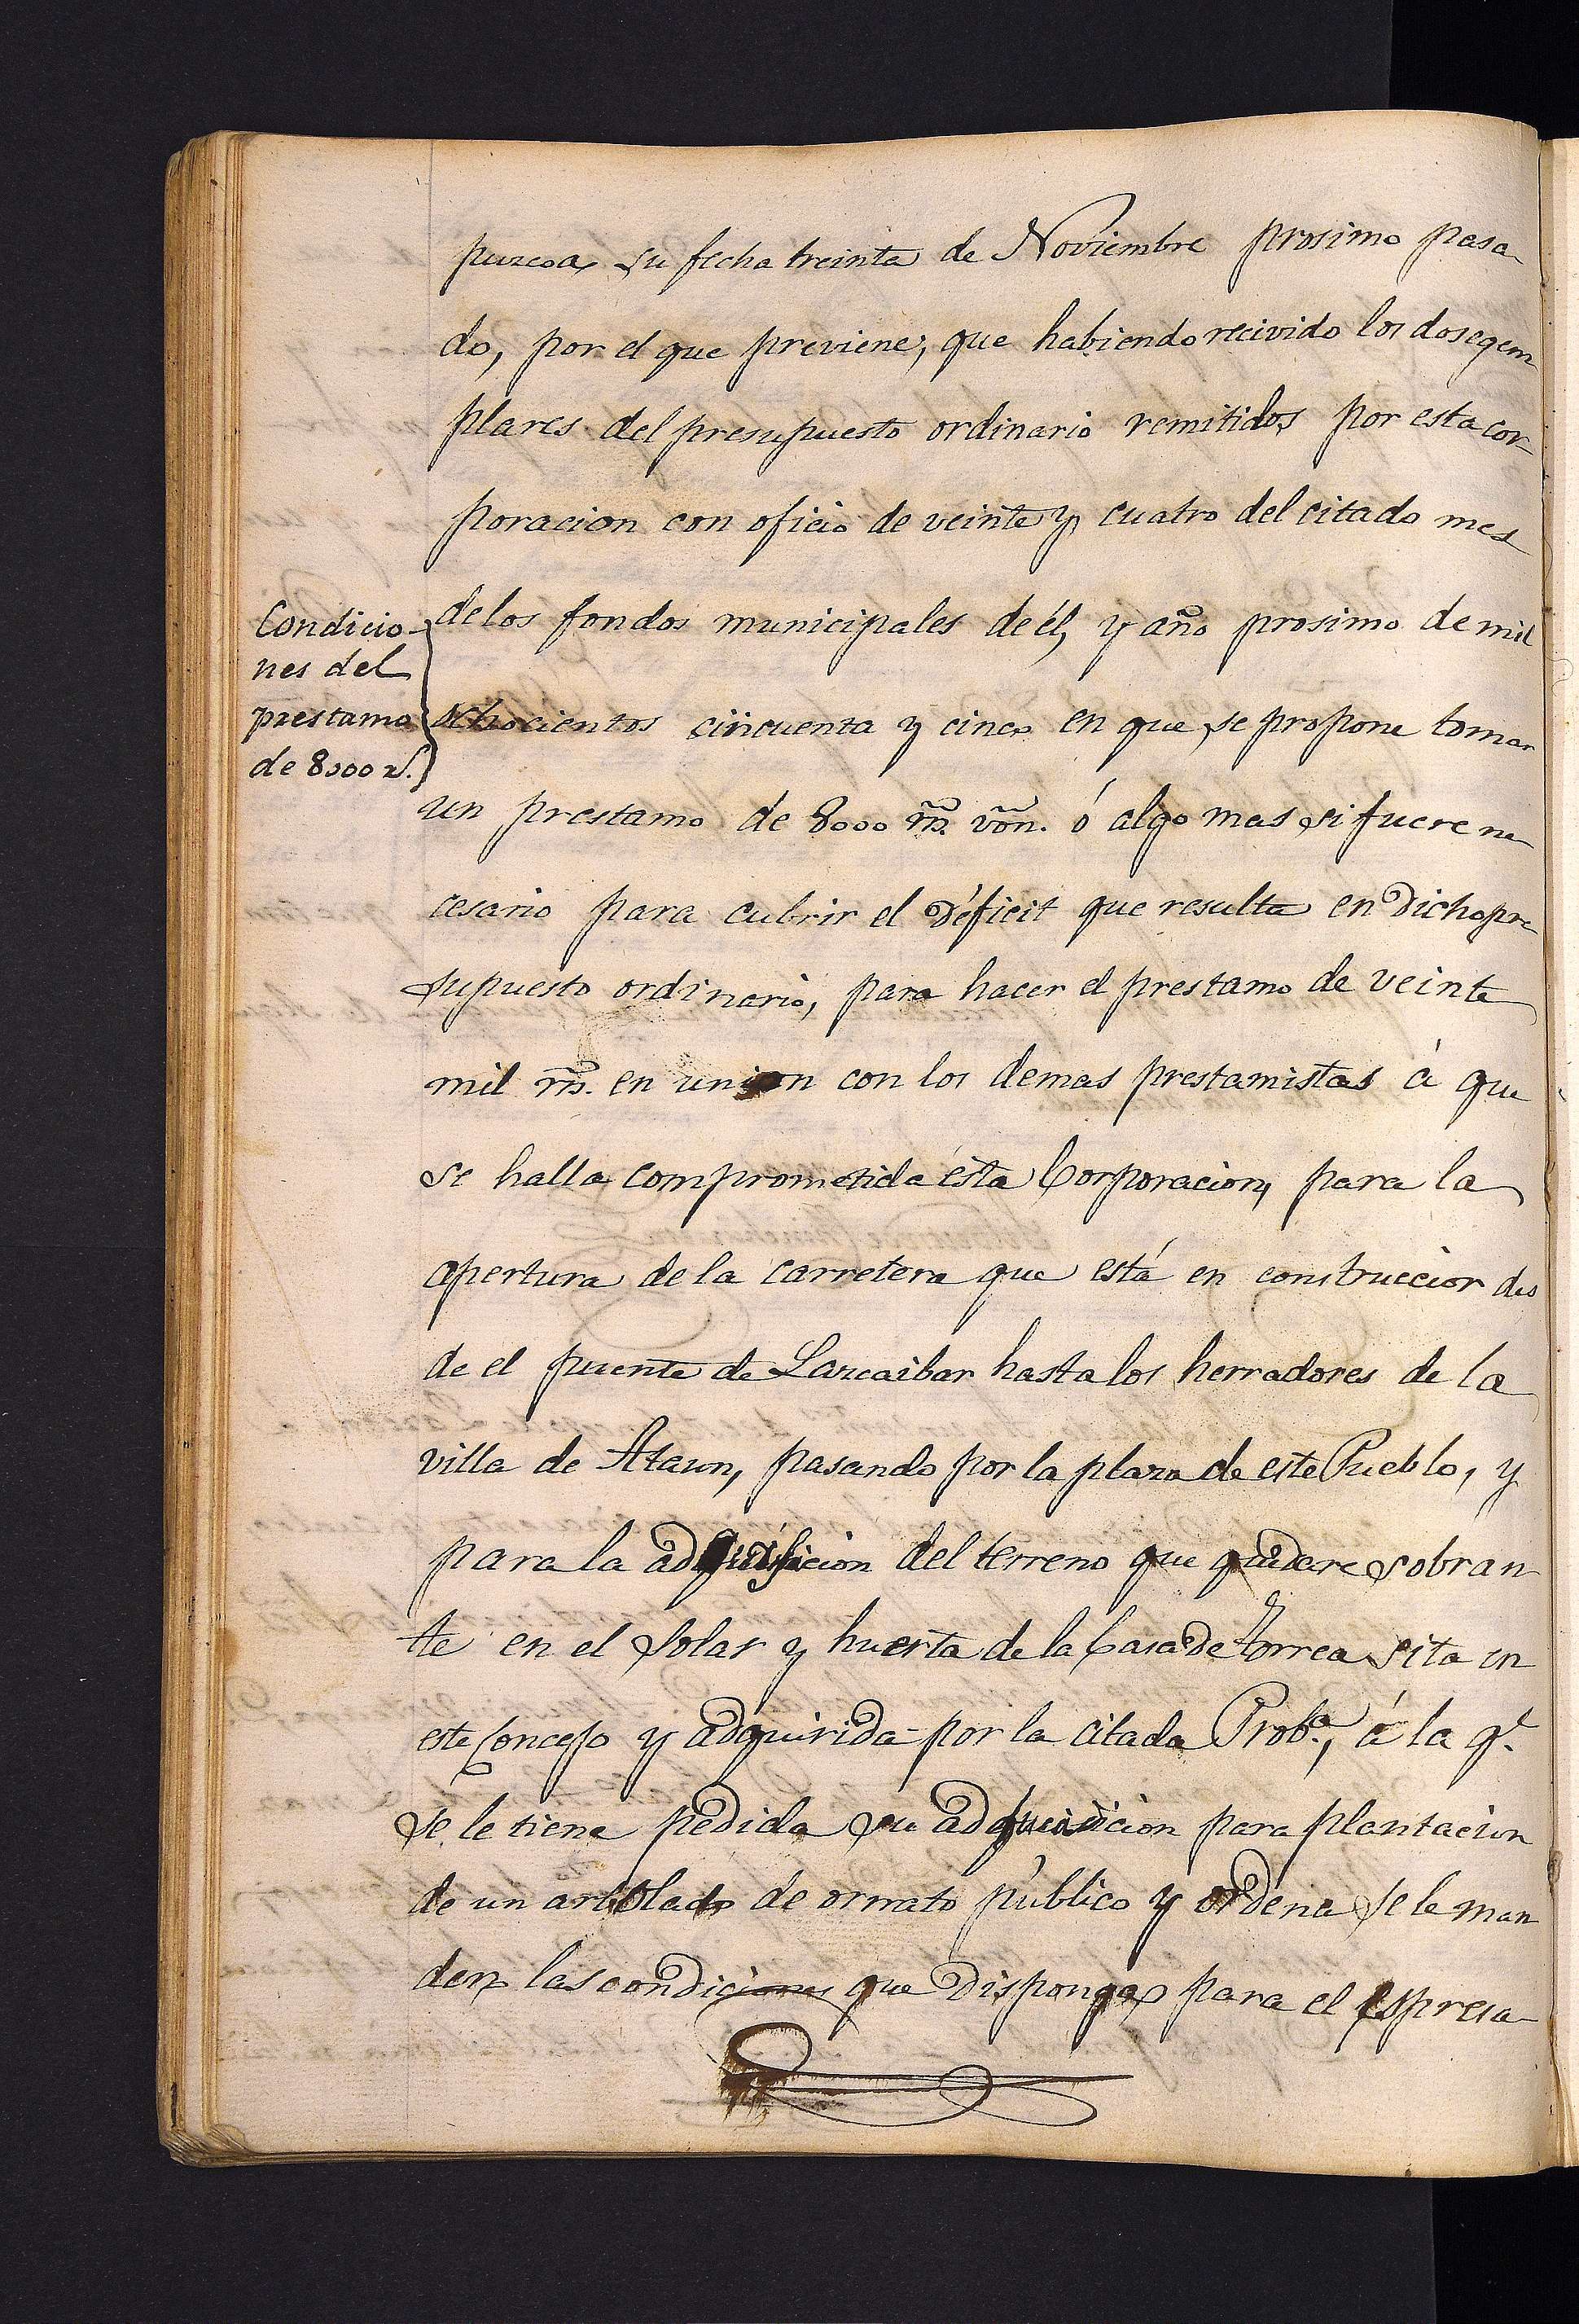 puzcoa, su fecha treinta de Noviembre prosimo pasa-
do, por el que previene, que habiendo recivido los dos egem-
plares del presupuesto ordinario remitidos por esta cor-
poracion con oficio de veinte y cuatro del citado mes
Condicio-
nes del
prestamo
de 8000 rs.
de los fondos municipales de él, y año prosimo de mil
ochocientos cincuenta y cinco en que se propone tomar
un prestamo de 8000 rs. von. ó algo mas si fuere ne-
cesario para cubrir el déficit que resulta en dicho pre-
supuesto ordinario, para hacer el prestamo de veinte
mil rs. en union con los demas prestamistas á que
se halla comprometida ésta Corporacion, para la
apertura de la carretera que está en construccion des-
de el puente de Lazcaibar hasta los herradores de la
villa de Ataun, pasando por la plaza de este Pueblo, y
para la adquisicion del terreno que quedare sobran-
te en el Solar y huerta de la Casa de Torrea sita en
este Concejo y adquirida por la citada Prob.ª, á la q.e
se le tiene pedida su adquisicion para plantacion
de un arbolado de ornato público y ordena se le man-
den las condiciones que disponga para el espresa-